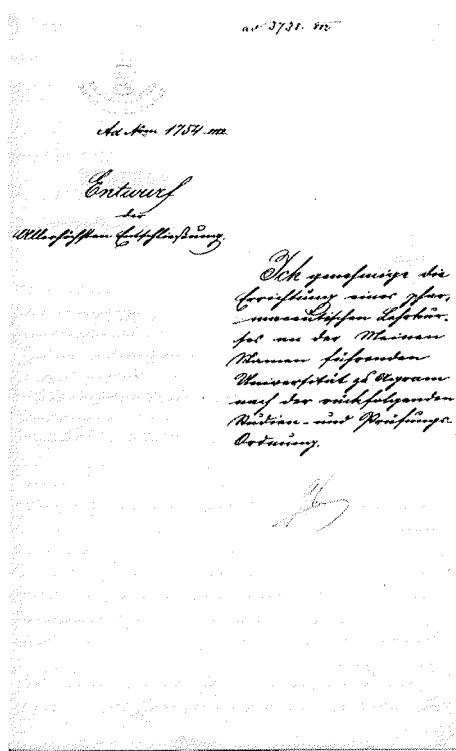 ad 3731. 882
Ad Num 1754 882
Entwurf
der
Allerhöchsten Entschließung.
Ich genehmige die
Errichtung eines phar-
maceutischen Lehrkur-
ses an der Meinen
Namen führenden
Universität zu Agram
nach der rückfolgenden
Studien- und Prüfungs-
Ordnung.